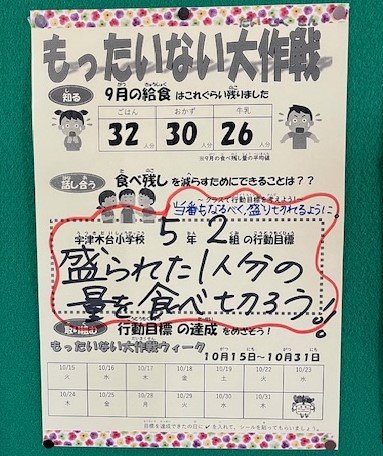 もったいない大作戦
知る 9月の給食はこれぐらい残りました
ごはん おかず 牛乳
32人分 30人分 26人分
※9月の食べ残し量の平均値
話し合う 食べ残しを減らすためにできることは??
～クラスで行動目標を考えよう!～
当番もなるべく盛りきれるように
宇津木台小学校 5年2組の行動目標
盛られた1人分の
量を食べ切ろう!
取り組む 行動目標の達成をめざそう!
もったいない大作戦ウィーク 10月15日～10月31日
10/15 10/16 10/17 10/18 10/19 10/22 10/23
火 水 木 金 土 火 水
10/24 10/25 10/28 10/29 10/30 10/31
木 金 月 火 水 木
目標を達成できた日に✔を入れて、シールを貼ってもらいましょう。